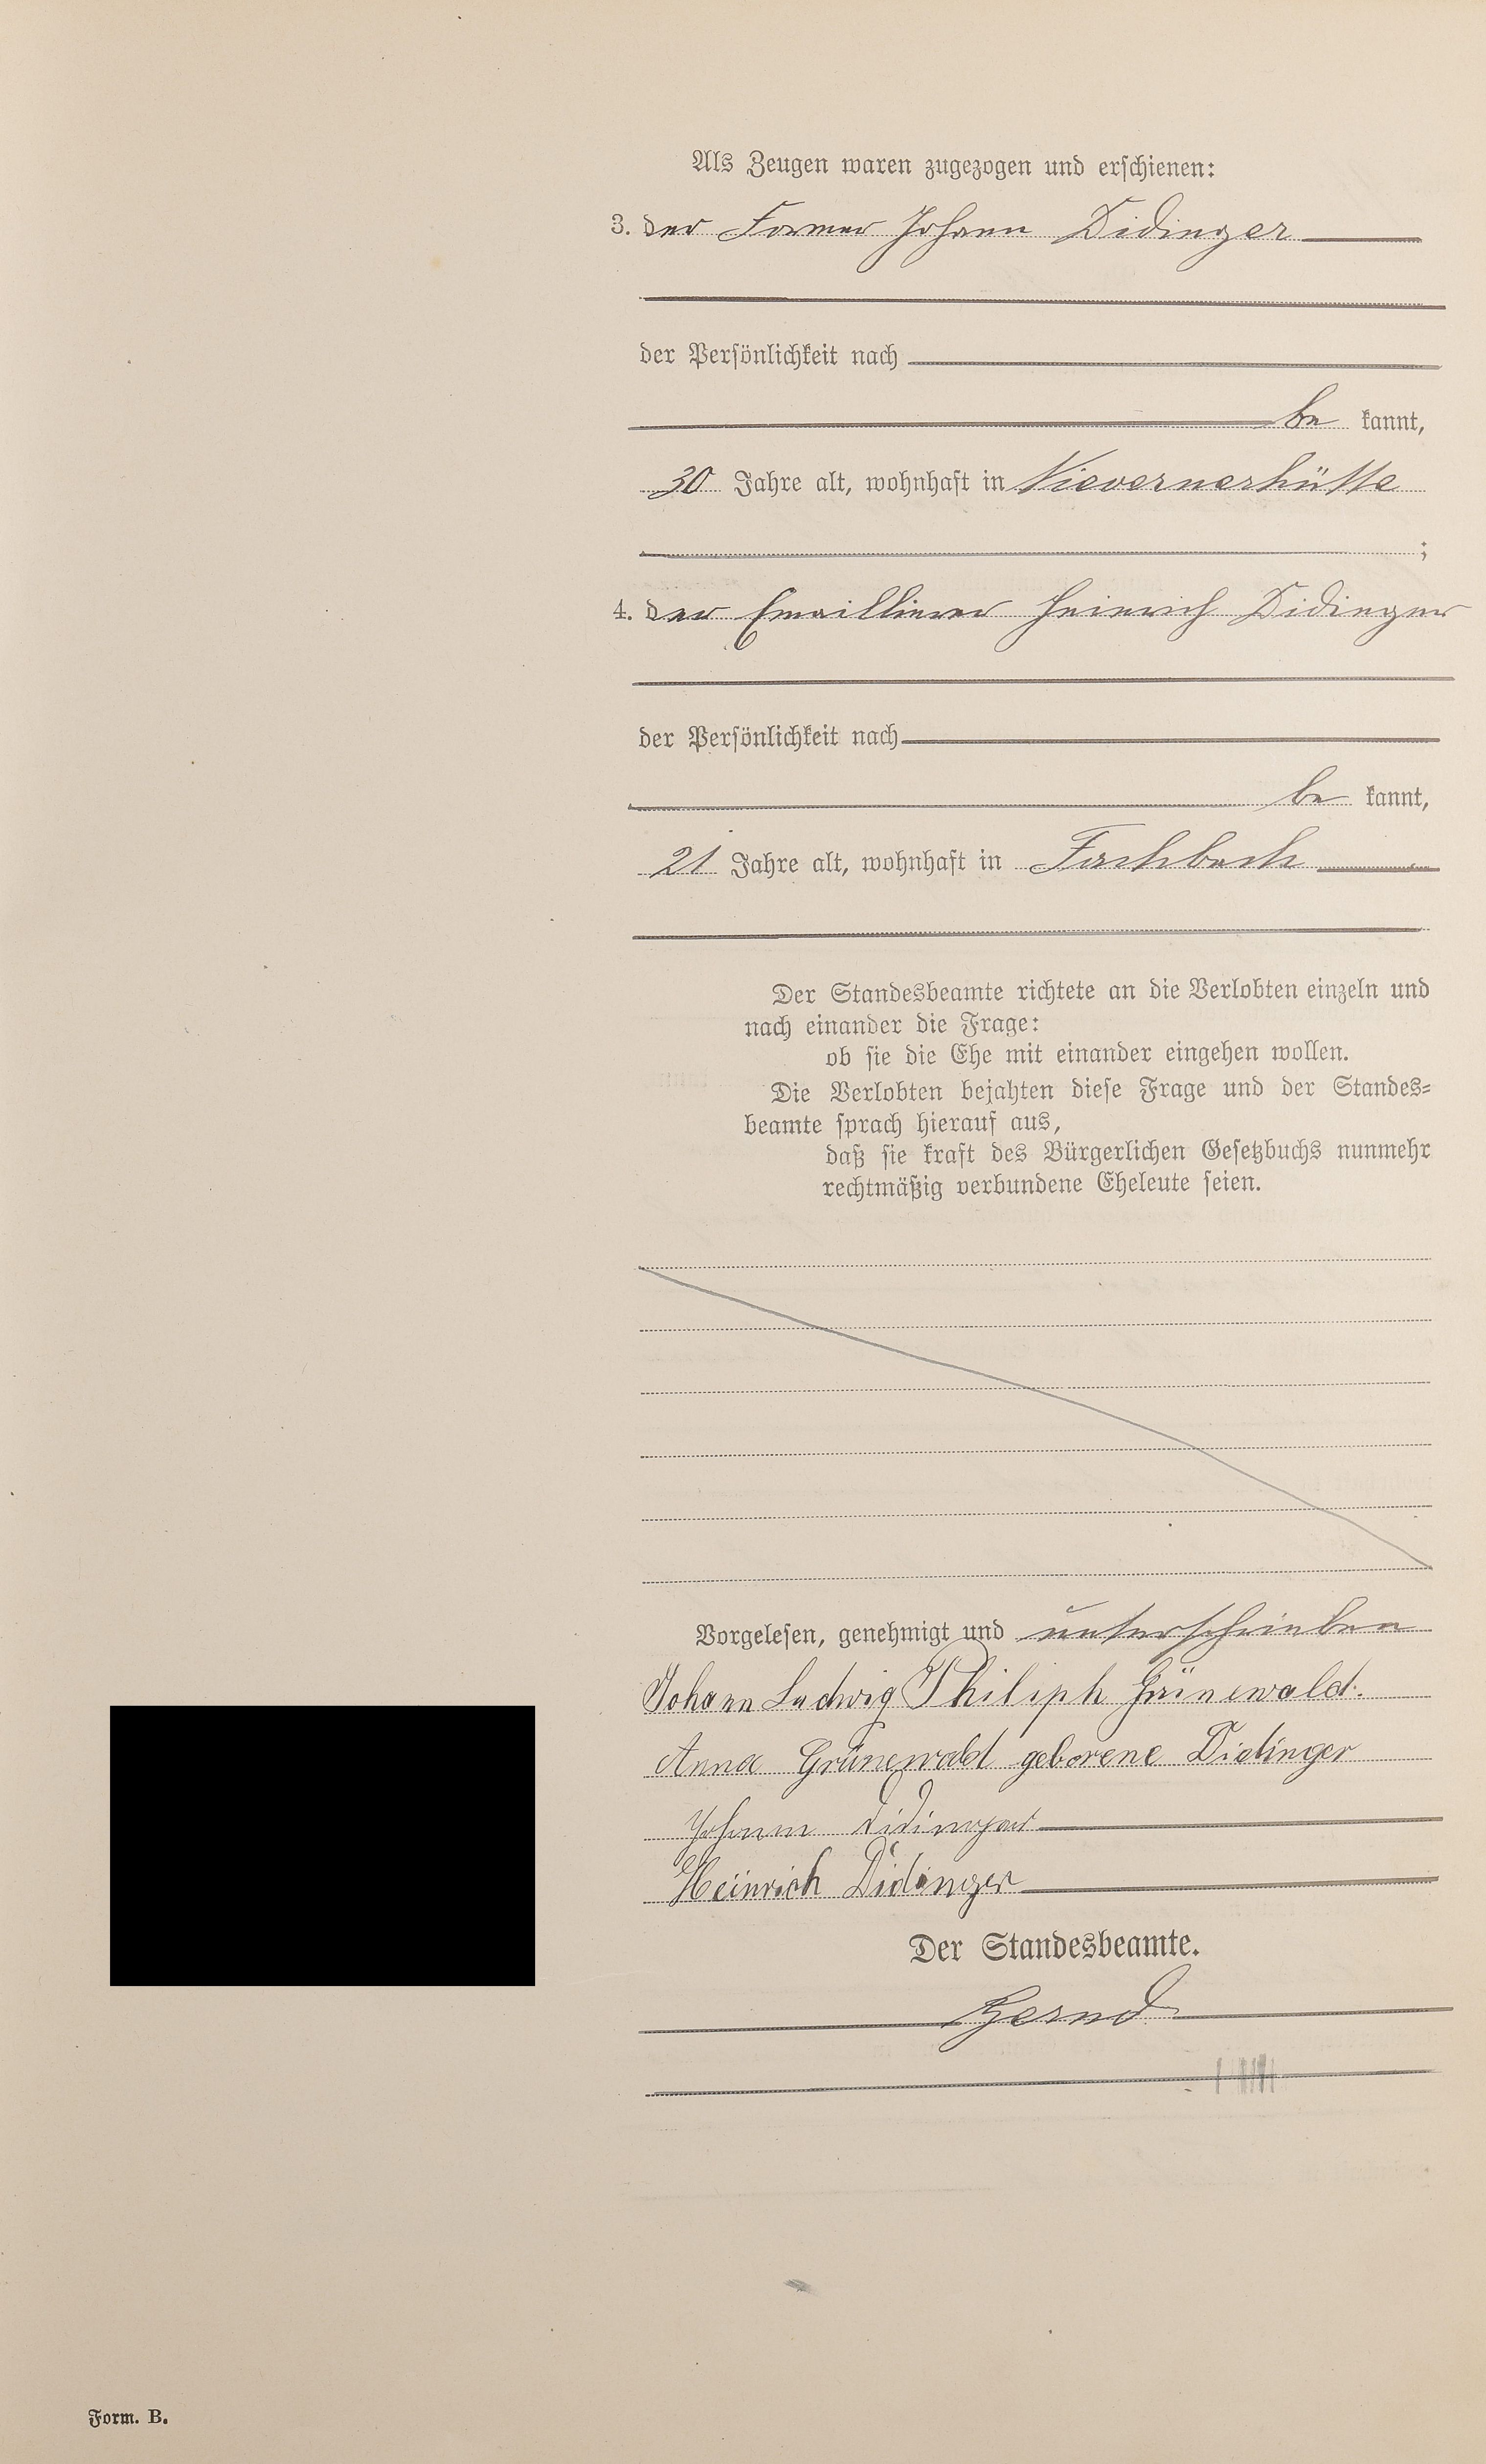 Als Zeugen waren zugezogen und erschienen:
3. der Former Johann Didinger
der Persönlichkeit nach
be kannt,
30 Jahre alt, wohnhaft in Nievernerhütte
;
4. der Emaillierer Heinrich Didinger
der Persönlichkeit nach
be kannt,
21 Jahre alt, wohnhaft in Fachbach
Der Standesbeamte richtete an die Verlobten einzeln und
nach einander die Frage:
ob sie die Ehe mit einander eingehen wollen.
Die Verlobten bejahten diese Frage und der Standes-
beamte sprach hierauf aus,
daß sie kraft des Bürgerlichen Gesetzbuchs nunmehr
rechtmäßig verbundene Eheleute seien.
Vorgelesen, genehmigt und unterschrieben
Johann Ludwig Philiph Grünewald.
Anna Grünewald geborene Didinger
Johann Didinger
Heinrich Didinger
Der Standesbeamte.
Form. B.